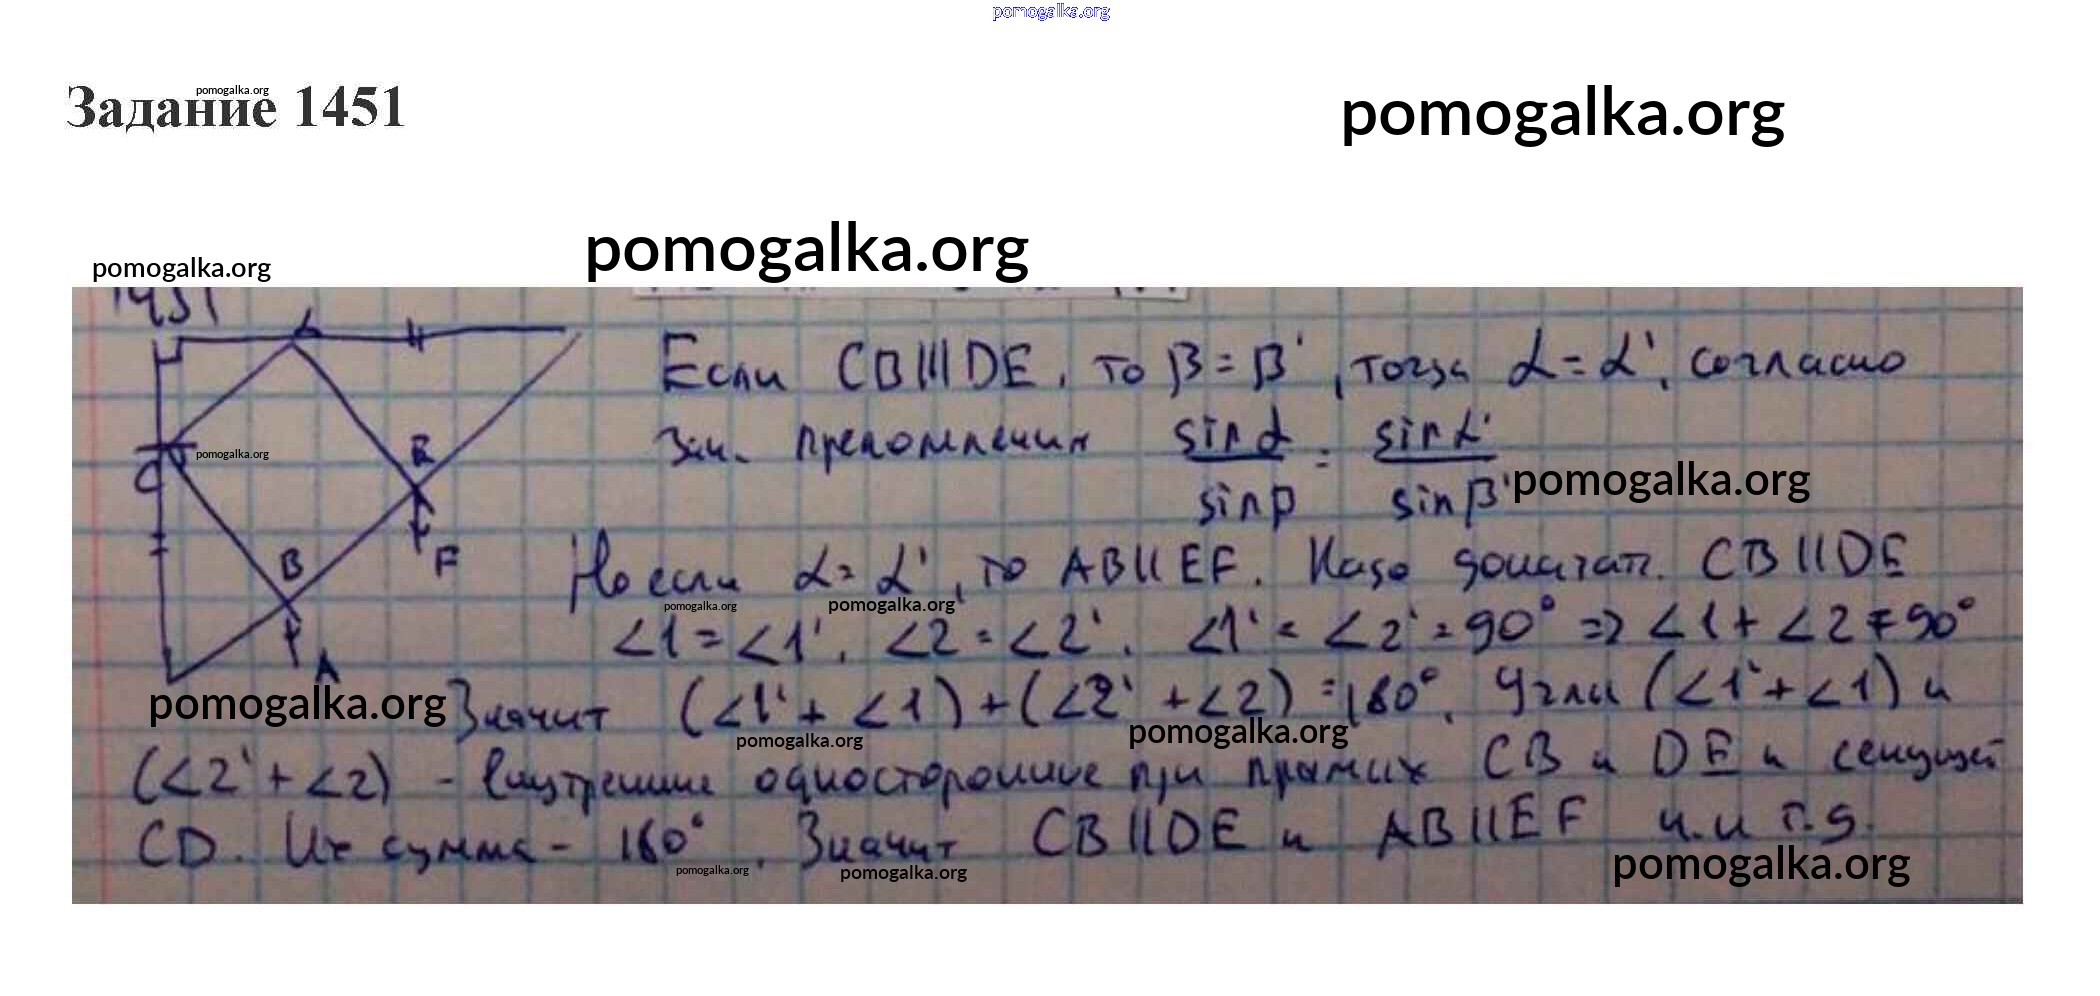 pomogalka.org
Задание 1451
pomogalka.org
pomogalka.org
pomogalka.org
pomogalka.org
1451
Если CB||DE, то β = β', тогда α = α', согласно
зак. преломления sin α / sin β = sin α' / sin β'
pomogalka.org
pomogalka.org
C
E
B
F
A
Но если α = α', то AB||EF. Надо доказать. CB||DE
pomogalka.org
pomogalka.org
∠1 = ∠1'. ∠2 = ∠2'. ∠1' + ∠2' = 90° => ∠1 + ∠2 = 90°
pomogalka.org
Значит (∠1' + ∠1) + (∠2' + ∠2) = 180°. Углы (∠1' + ∠1) и
pomogalka.org
pomogalka.org
(∠2' + ∠2) - внутренние односторонние при прямых CB и DE и секущей
CD. Их сумма - 180°. Значит CB||DE и AB||EF ч.и т.д.
pomogalka.org
pomogalka.org
pomogalka.org